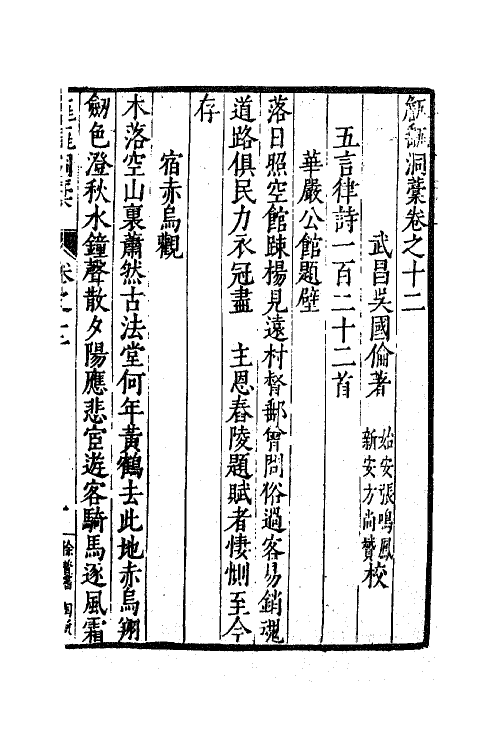 甔甀洞藁卷之十二
武昌吳國倫著
始安張鳴鳳
新安方尚贇校
五言律詩一百二十二首
華嚴公館題壁
落日照空館踈楊見遠村督郵曾問俗過客易銷魂
道路俱民力衣冠盡 主恩舂陵題賦者悽惻至今
存
宿赤烏觀
木落空山裏蕭然古法堂何年黃鶴去此地赤烏翔
劒色澄秋水鐘聲散夕陽應悲宦遊客騎馬逐風霜
卷之十二